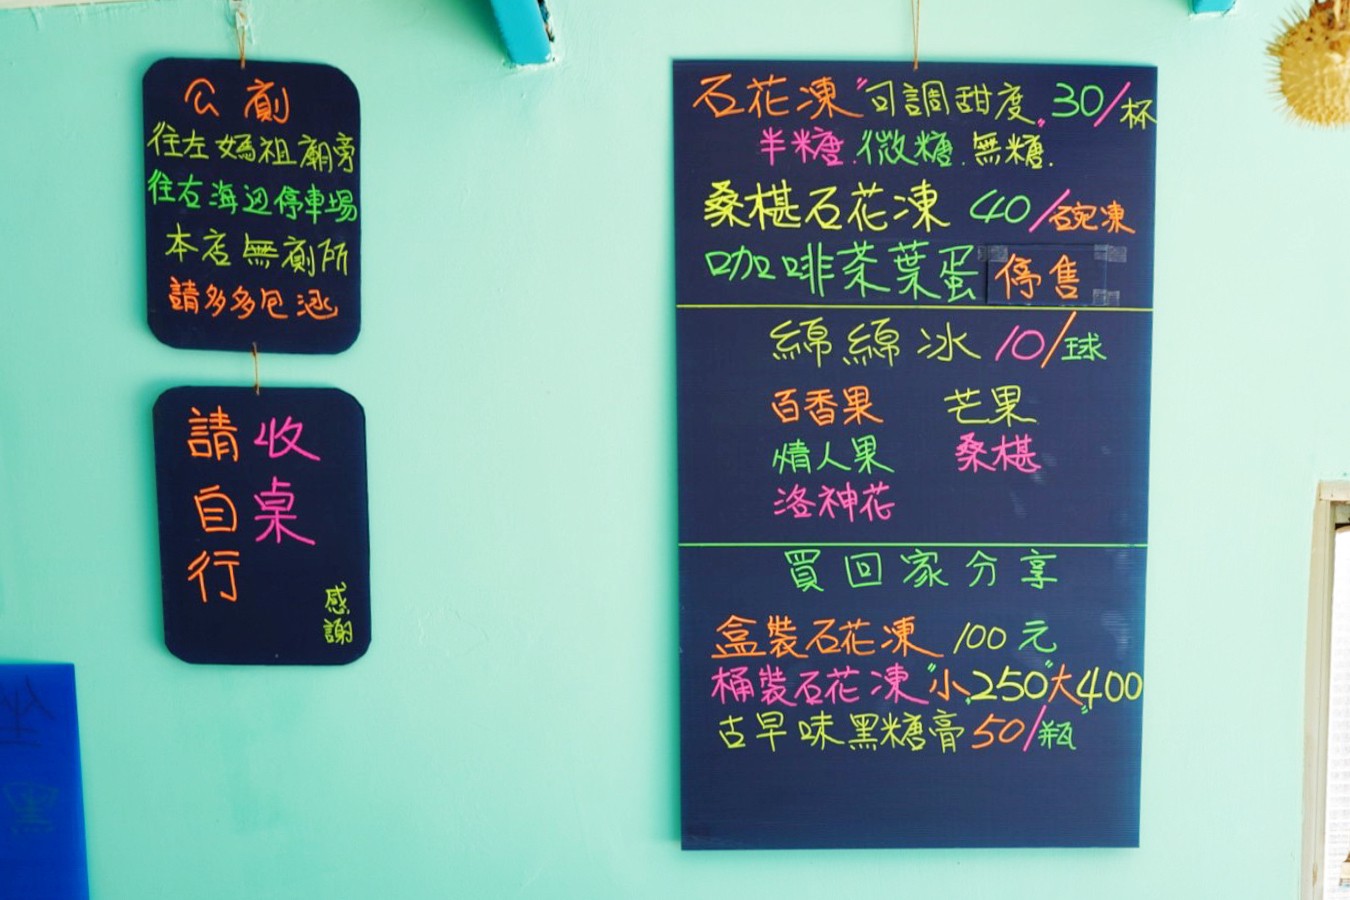 公廁
往左媽祖廟旁
往右海边停車場
本店無廁所
請多多包涵
請自行
收桌
感謝
石花凍"可調甜度"30/杯
半糖.微糖.無糖.
桑椹石花凍 40/碗凍
咖啡茶葉蛋 停售
綿綿冰 10/球
百香果 芒果
情人果 桑椹
洛神花
買回家分享
盒裝石花凍 100元
桶裝石花凍"小250"大400"
古早味黑糖膏50/瓶